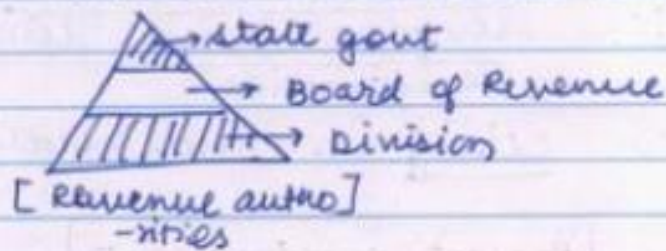 state govt
Board of Revenue
Division
[ Revenue autho]
-rities